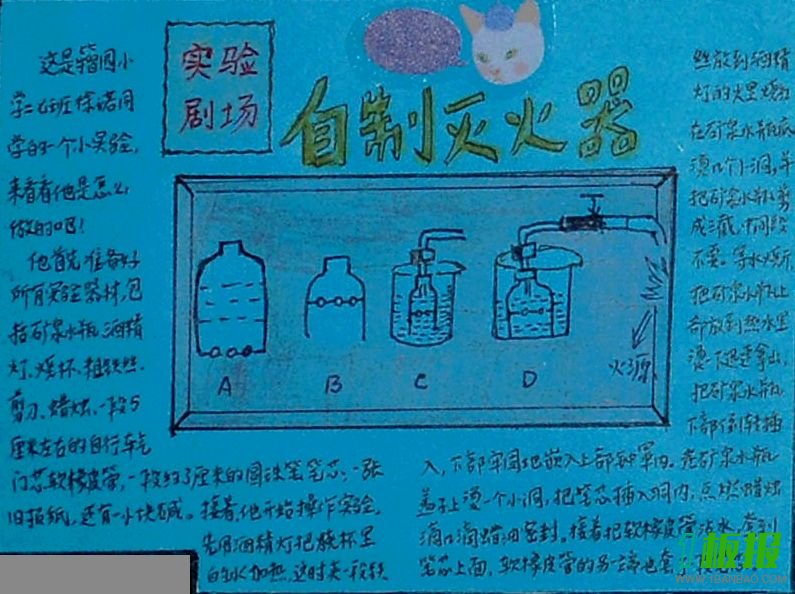 实验
剧场
自制灭火器
这是 小
学 班 同
学的一个小实验，
来看看他是怎么
做的吧！
他首先准备好
所有实验器材，包
括矿泉水瓶、酒精
灯、烧杯、粗铁丝、
剪刀、蜡烛、一段5
厘米左右的自行车气
门芯软橡皮管，一段约3厘米的圆珠笔笔芯，一张
旧报纸，还有一小块碱。接着，他开始操作实验，
先用酒精灯把烧杯里
的水加热，这时 一段铁
丝放到酒精
灯的火里烧红
在矿泉水瓶底
烫几个小洞，并
把矿泉水瓶剪
成三截，中间段
不要。等水烧开，
把矿泉水瓶上
部放到热水里
烫 迅速拿出，
把矿泉水瓶
下部倒转插
入，下部牢固地嵌入上部钟罩内。在矿泉水瓶
盖子上烫一个小洞，把笔芯插入洞内，点燃蜡烛
滴几滴蜡油密封，接着把软橡皮管沾水，套到
笔芯上面，软橡皮管的另一端也套
A
B
C
D
火源
板报
WWW.1BANBAO.COM